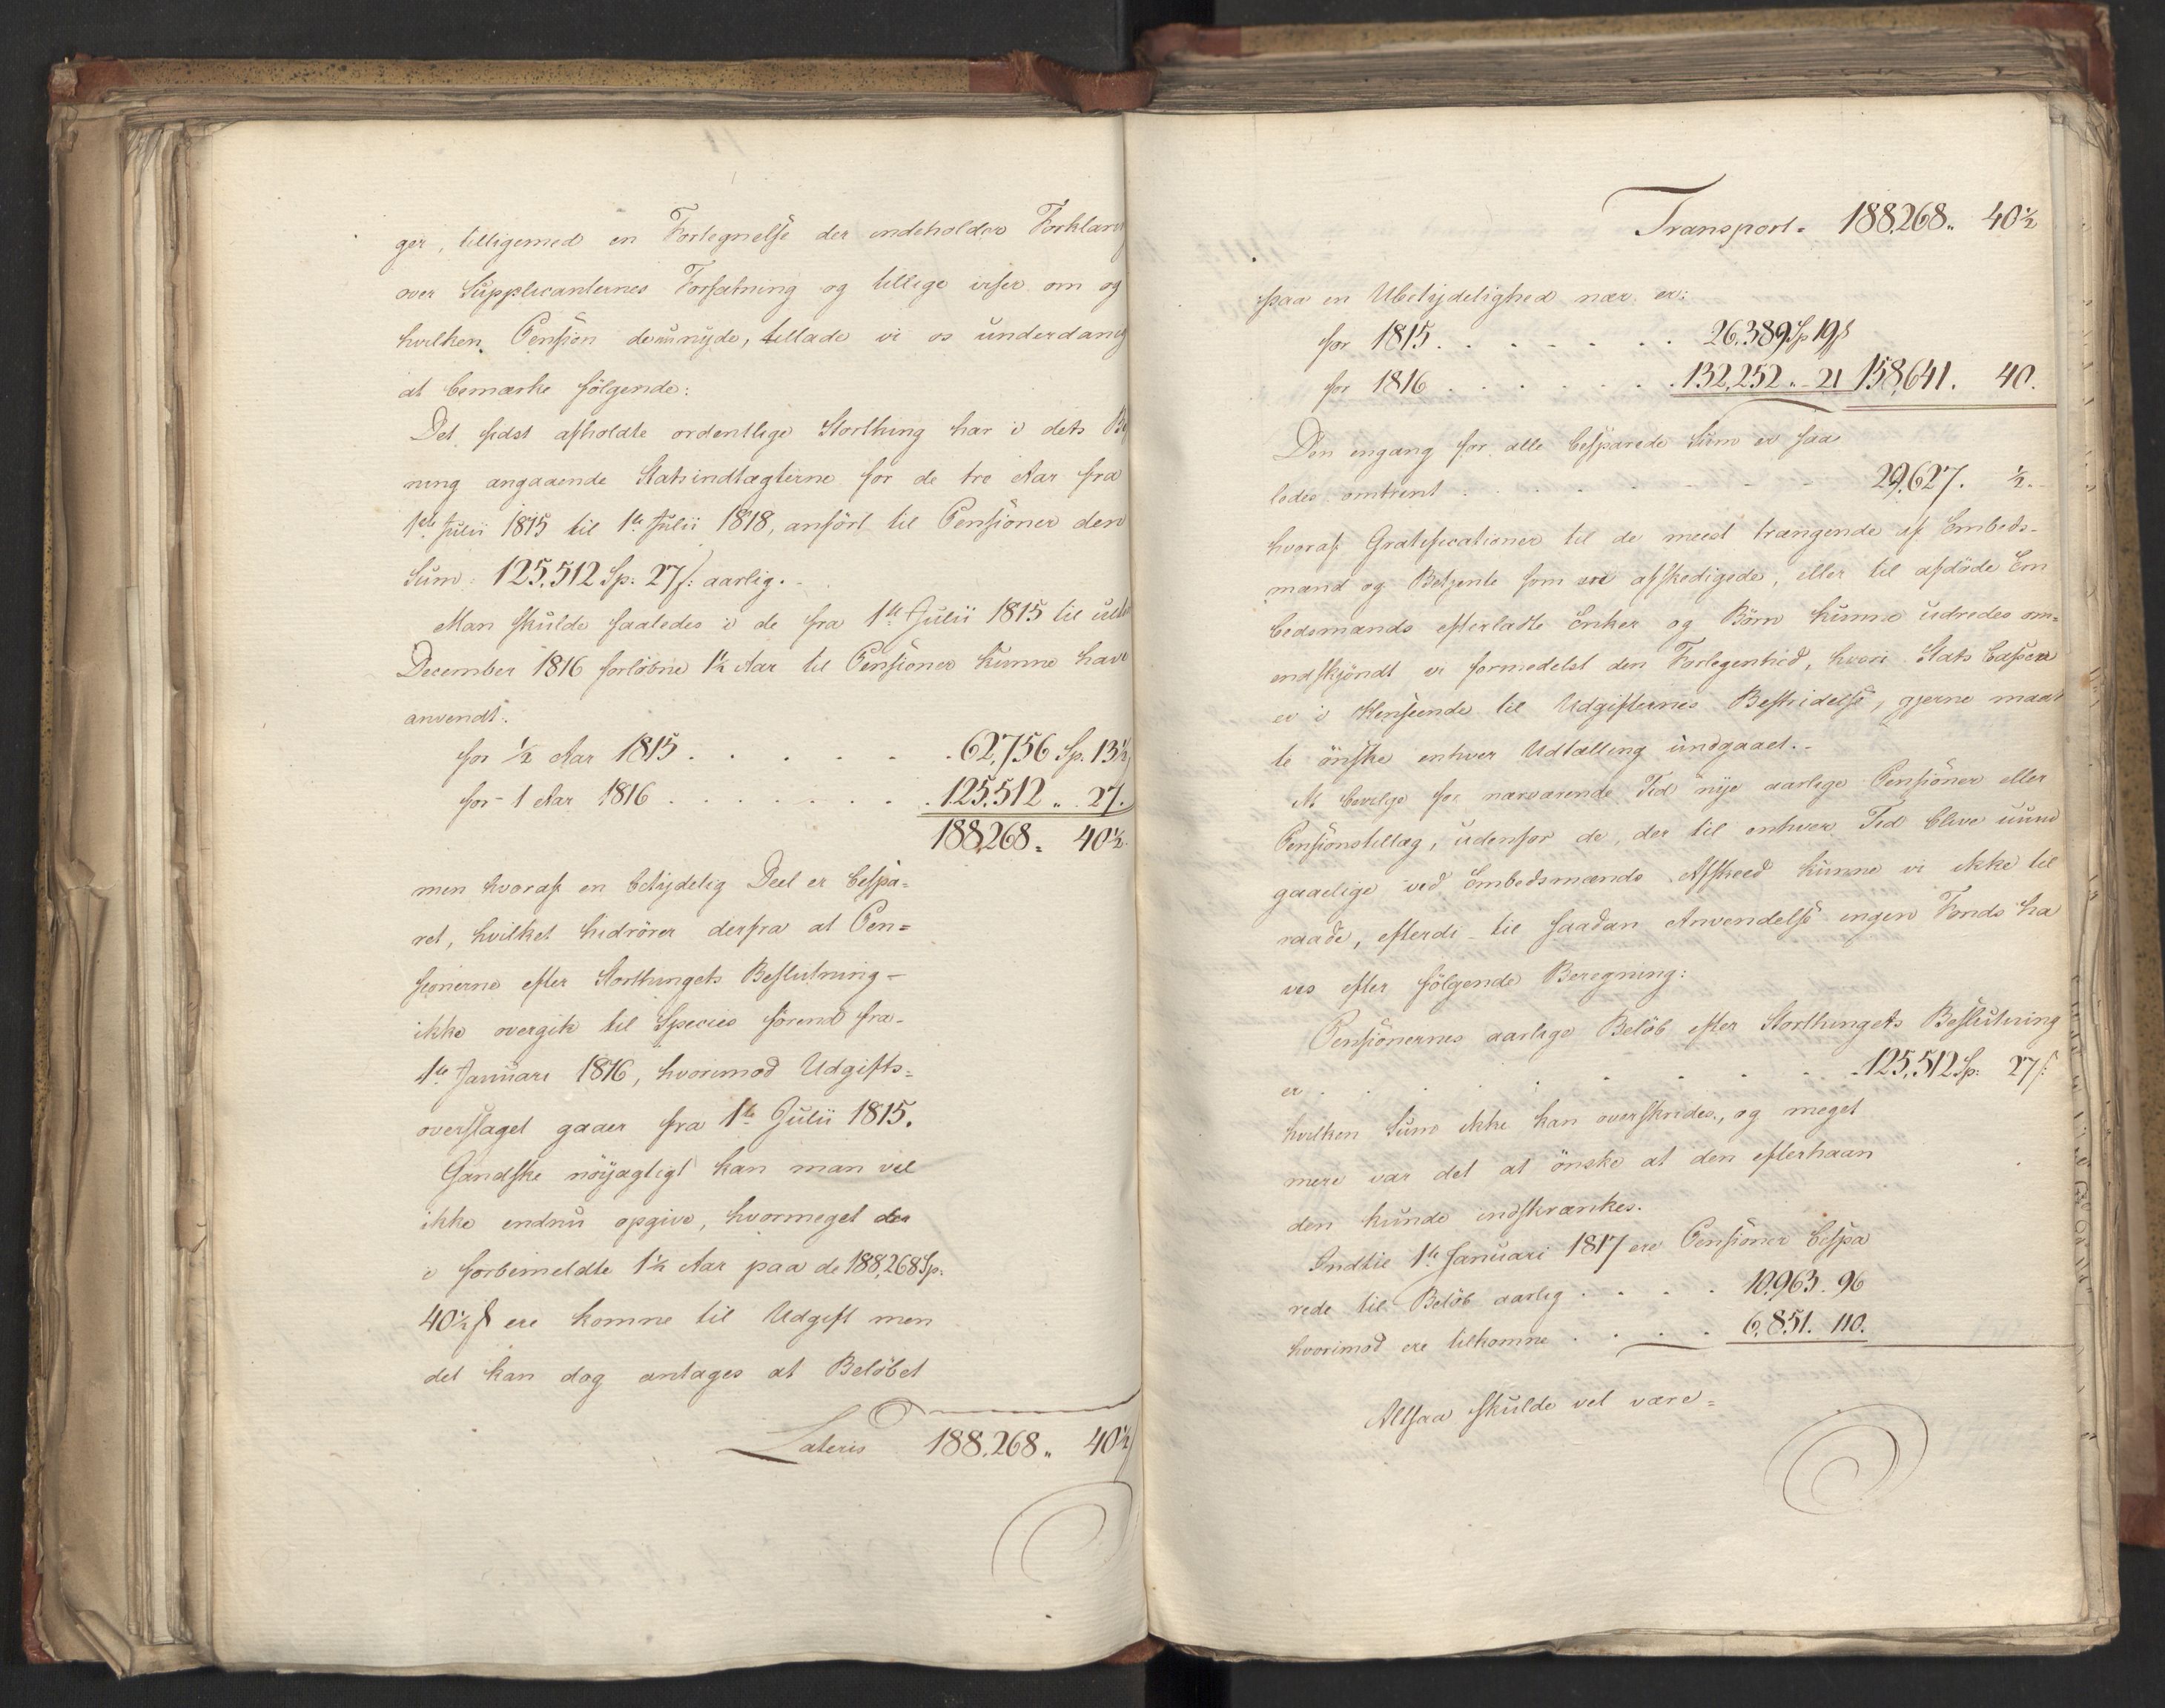 ger, tilligemed en Fortegnelse der indeholder Forklaring
over Supplicanternes Forfatning og tillige viser om og
hvilken Pension de nu nyde, tillade vi os underdanig
at bemærke følgende:
Det sidst afholdte ordentlige Storthing har i dets Be
ning angaaende Statsindtægterne for de tre Aar fra
1ste Julii 1815 til 1ste Julii 1818, anført til Pensioner den
Sum: 125,512 Sp: 27 s: aarlig.
Man skulde saaledes i de fra 1ste Julii 1815 til ulti
December 1816 forløbne 1½ Aar til Pensioner kunne have
anvendt:
for ½ Aar 1815 . . . . . . 62,756 Sp. 13½
for 1 Aar 1816 . . . . . . . 125,512 „ 27.
188,268 „ 40½.
men hvoraf en betydelig Deel er bespa=
ret, hvilket hidrører derfra at Pen=
sionerne efter Storthingets Beslutning -
ikke overgik til Species førend fra-
1ste Januari 1816, hvorimod Udgifts=
overslaget gaaer fra 1ste Julii 1815.
Gandske nøyagtigt kan man vel
ikke endnu opgive, hvormeget der
i forbemeldte 1½ Aar paa de 188,268 Sp:
40½ s ere komne til Udgift men
det kan dog antages at Beløbet
Lateris 188,268 „ 40½
Transport. 188,268 „ 40½
paa en Ubetydelighed nær er:
for 1815 . . . . . . . 26,389 Sp 19 s
for 1816 . . . . . . . 132,252 „ 21 158,641. 40.
Den engang for alle besparede Sum er saa
ledes omtrent . . . . . . . 29,627. ½.
hvoraf Gratificationer til de meest trængende af Embeds-
mænd og Betjente som ere afskedigede, eller til afdøde Em
bedsmænds efterladte Enker og Børn kunne udredes om=
endskjøndt vi formedelst den Forlegenhed, hvori Stats Cassen
er i Henseende til Udgifternes Bestridelse, gjerne maat
te ønske enhver Udtælling undgaaet.-
At bevilge for nærværende Tid nye aarlige Pensioner eller
Pensionstillæg, udenfor de, der til enhver Tid blive uund
gaaelige ved Embedsmænds Afskeed kunne vi ikke til
raade, efterdi til saadan Anvendelse ingen Fonds ha
ves efter følgende Beregning:
Pensionernes aarlige Beløb efter Storthingets Beslutning
er . . . . . . . 125,512 Sp: 27 s:
hvilken Sum ikke kan overskrides, og meget
mere var det at ønske at den efterhaan
den kunde indskrænkes.
Indtil 1ste Januari 1817 ere Pensioner bespa
rede til Beløb aarlig . . . . 10,963. 96
hvorimod ere tilkomne . . . . 6,851. 110.
Altsaa skulde vel være=